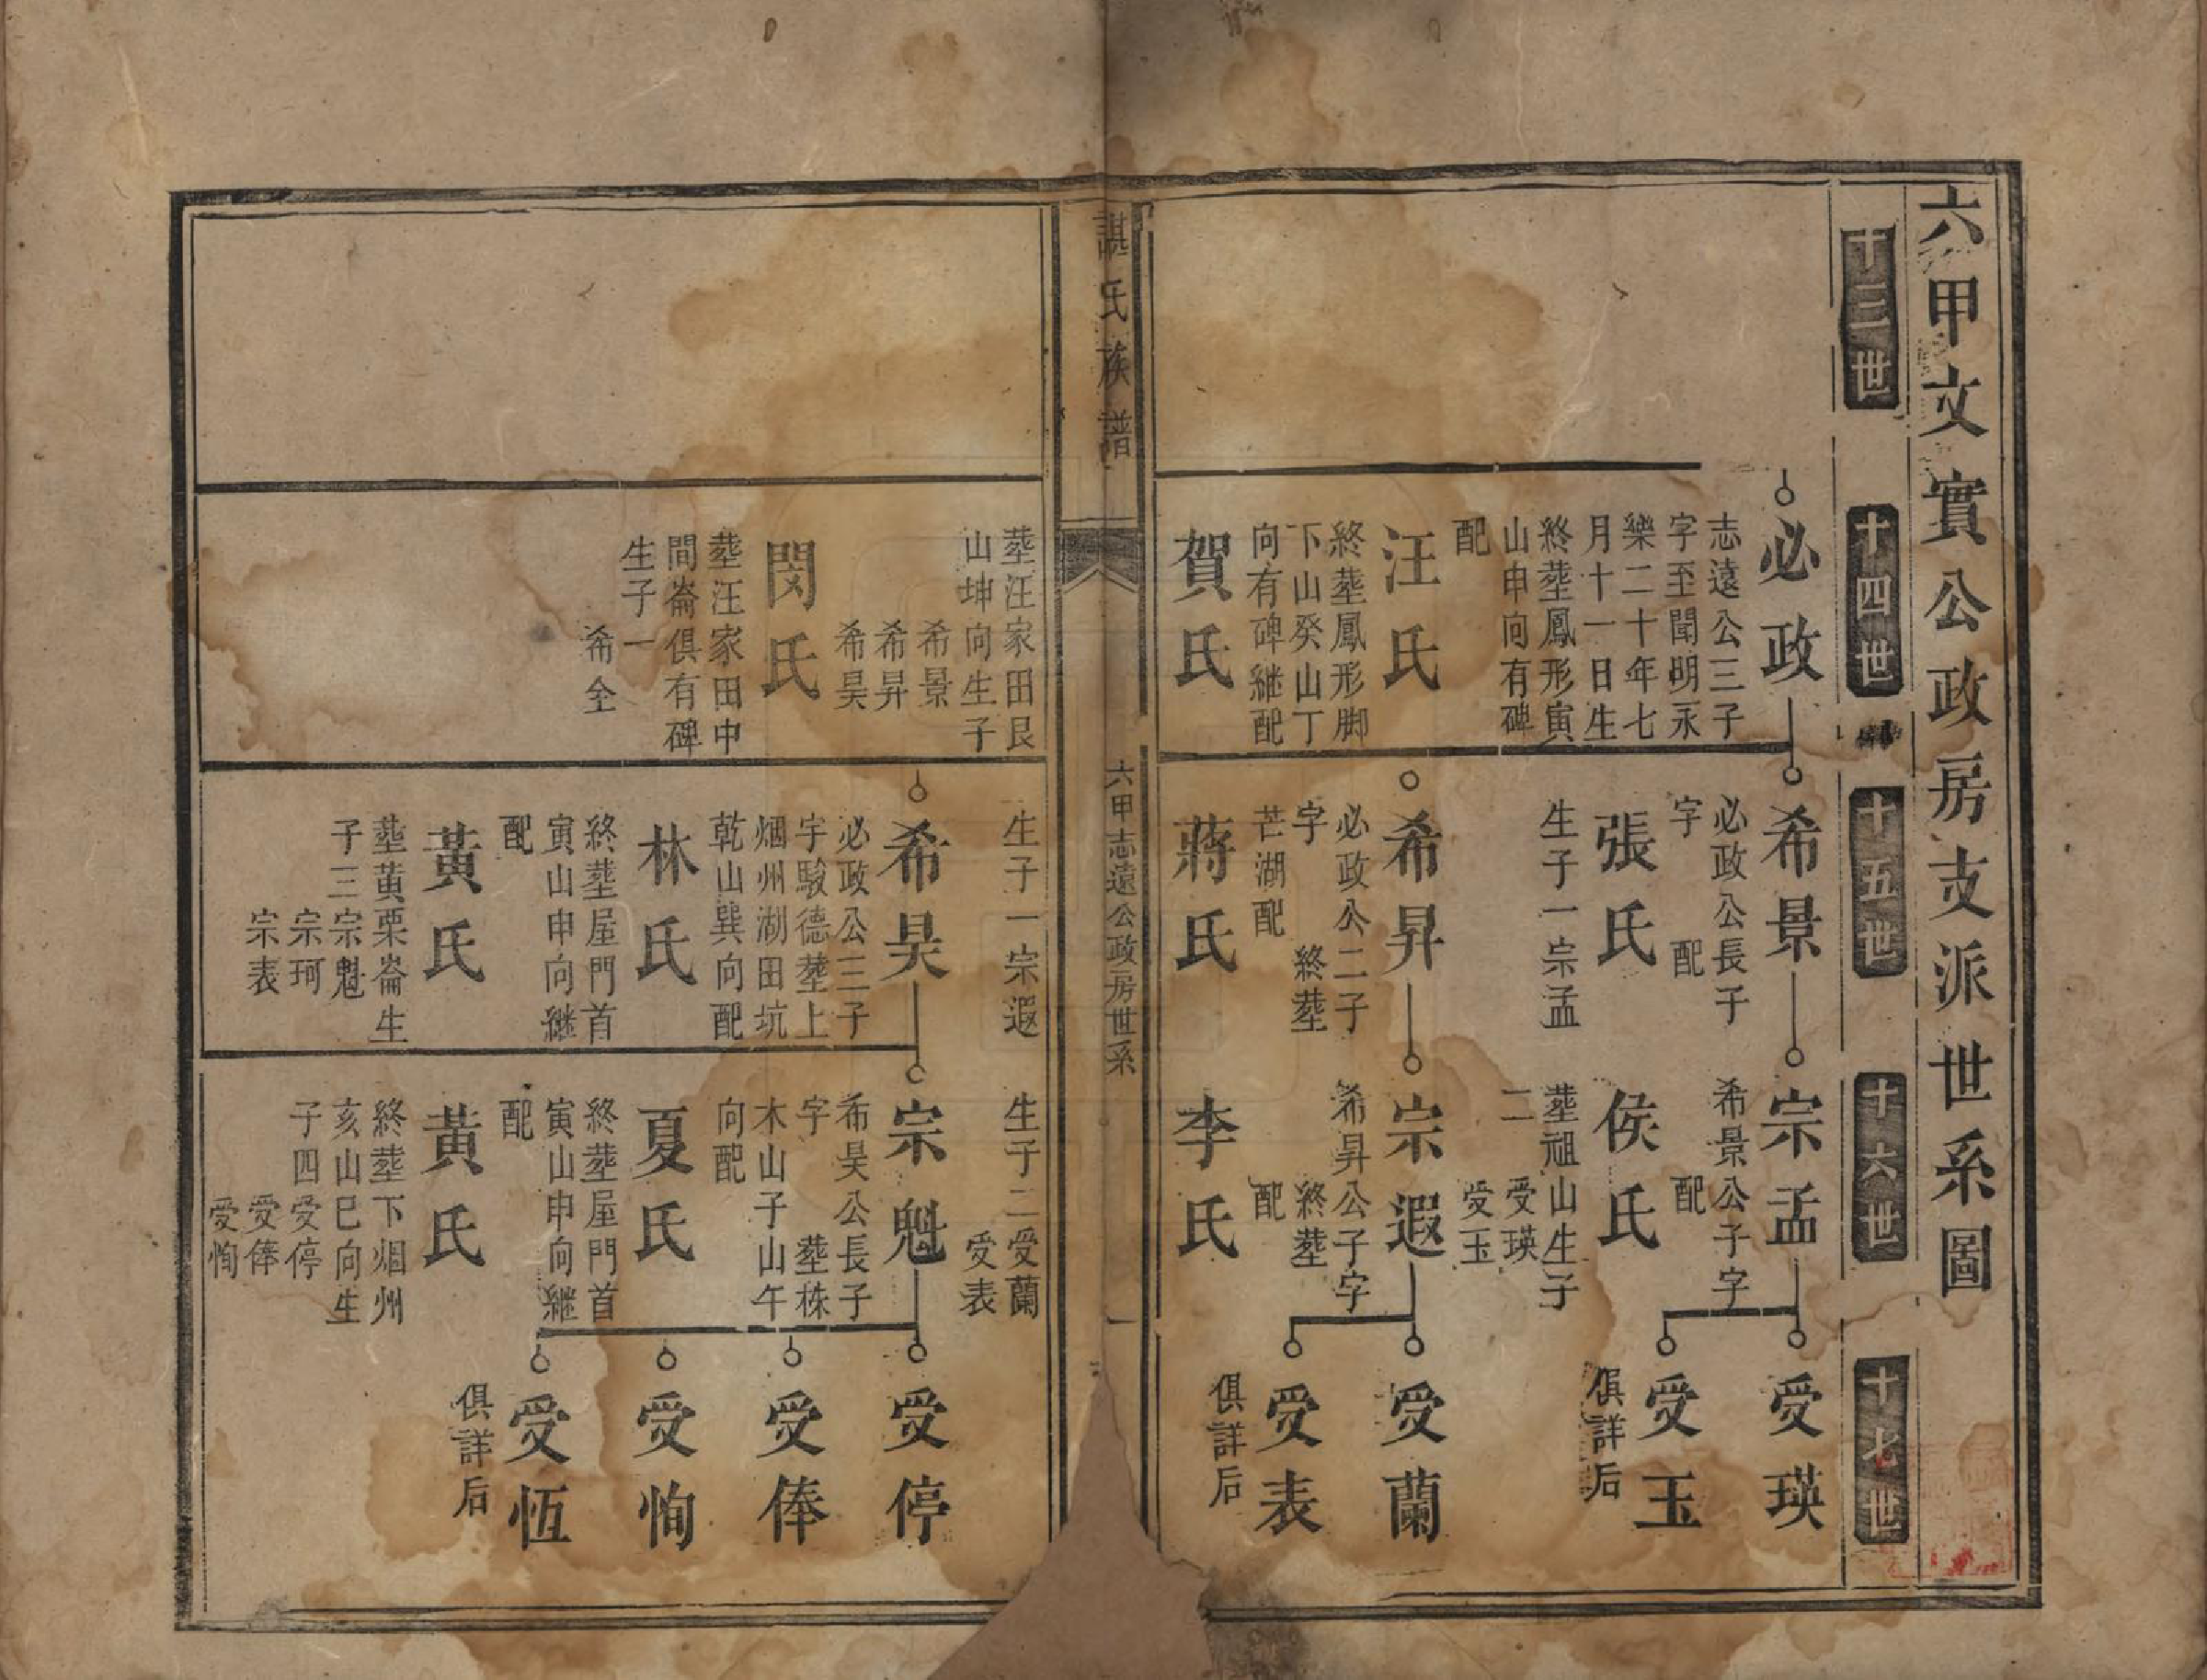 六甲文實公政房支派世系圖
十三世
十四世
十五世
十六世
十七世
必政
志遠公三子
字至聞明永
樂二十年七
月十一日生
終塟鳳形寅
山申向有碑
配
汪氏
終塟鳳形脚
下山癸山丁
向有碑継配
賀氏
希景
必政公長子
字 配
張氏
生子一宗孟
希昇
必政公二子
字 終塟
芒湖配
蔣氏
宗孟
希景公子字
配
侯氏
塟祖山生子
二 受瑛
受玉
宗遐
希昇公子字
終塟
配
李氏
受瑛
受玉
俱詳后
受蘭
受表
俱詳后
諶氏族譜
六甲志遠公政房世系
一
塟汪家田艮
山坤向生子
希景
希昇
希昊
閔氏
塟汪家田中
間崙俱有碑
生子一
希全
生子一宗遐
希昊
必政公三子
字駿德塟上
烟州湖田坑
乾山巽向配
林氏
終塟屋門首
寅山申向継
配
黃氏
塟黄栗崙生
子三宗魁
宗珂
宗表
生子二受蘭
受表
宗魁
希昊公長子
字 塟株
木山子山午
向配
夏氏
終塟屋門首
寅山申向継
配
黃氏
終塟下烟州
亥山巳向生
子四受停
受俸
受恂
受停
受俸
受恂
受恆
俱詳后